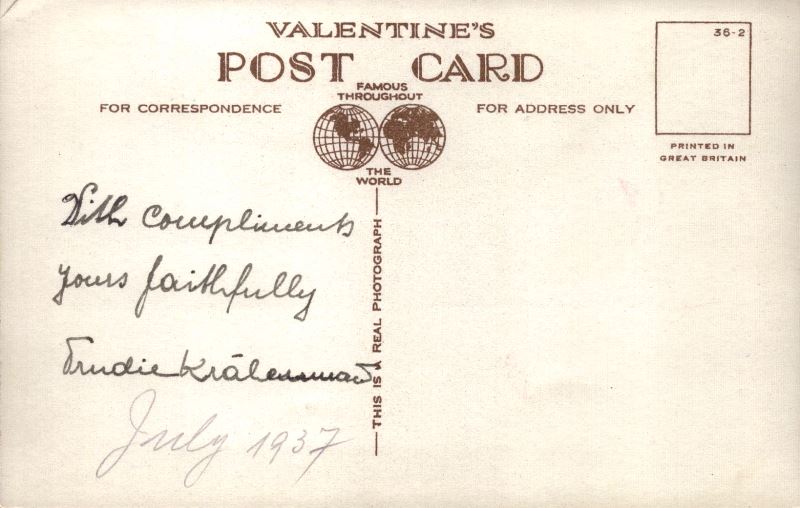 VALENTINE'S
POST CARD
36-2
FAMOUS
THROUGHOUT
FOR CORRESPONDENCE
FOR ADDRESS ONLY
PRINTED IN
GREAT BRITAIN
THE
WORLD
THIS IS A REAL PHOTOGRAPH
With compliments
yours faithfully
Trudie
July 1937